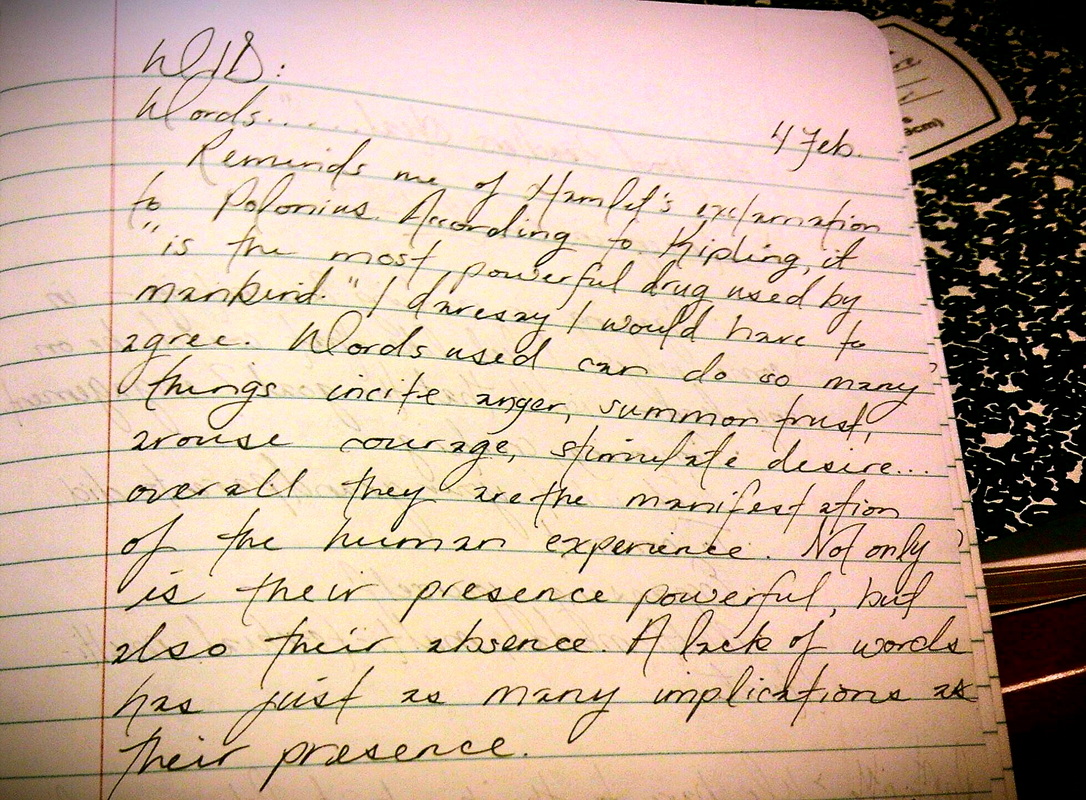 WIB:
Words.......
4 Feb.
Reminds me of Hamlet's exclamation
to Polonius. According to Kipling, it
"is the most powerful drug used by
mankind." I daresay I would have to
agree. Words used can do so many
things incite anger, summon trust,
arouse courage, stimulate desire...
overall they are the manifestation
of the human experience. Not only
is their presence powerful, but
also their absence. A lack of words
has just as many implications as
their presence.
cm)